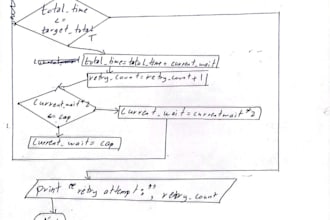 total_time
<=
target_total
T
total_time=total_time + current_wait
retry_count=retry_count+1
Current_wait*2
<= cap
Current_wait=currentwait*2
Current_wait= cap
print "retry attempt:", retry_count